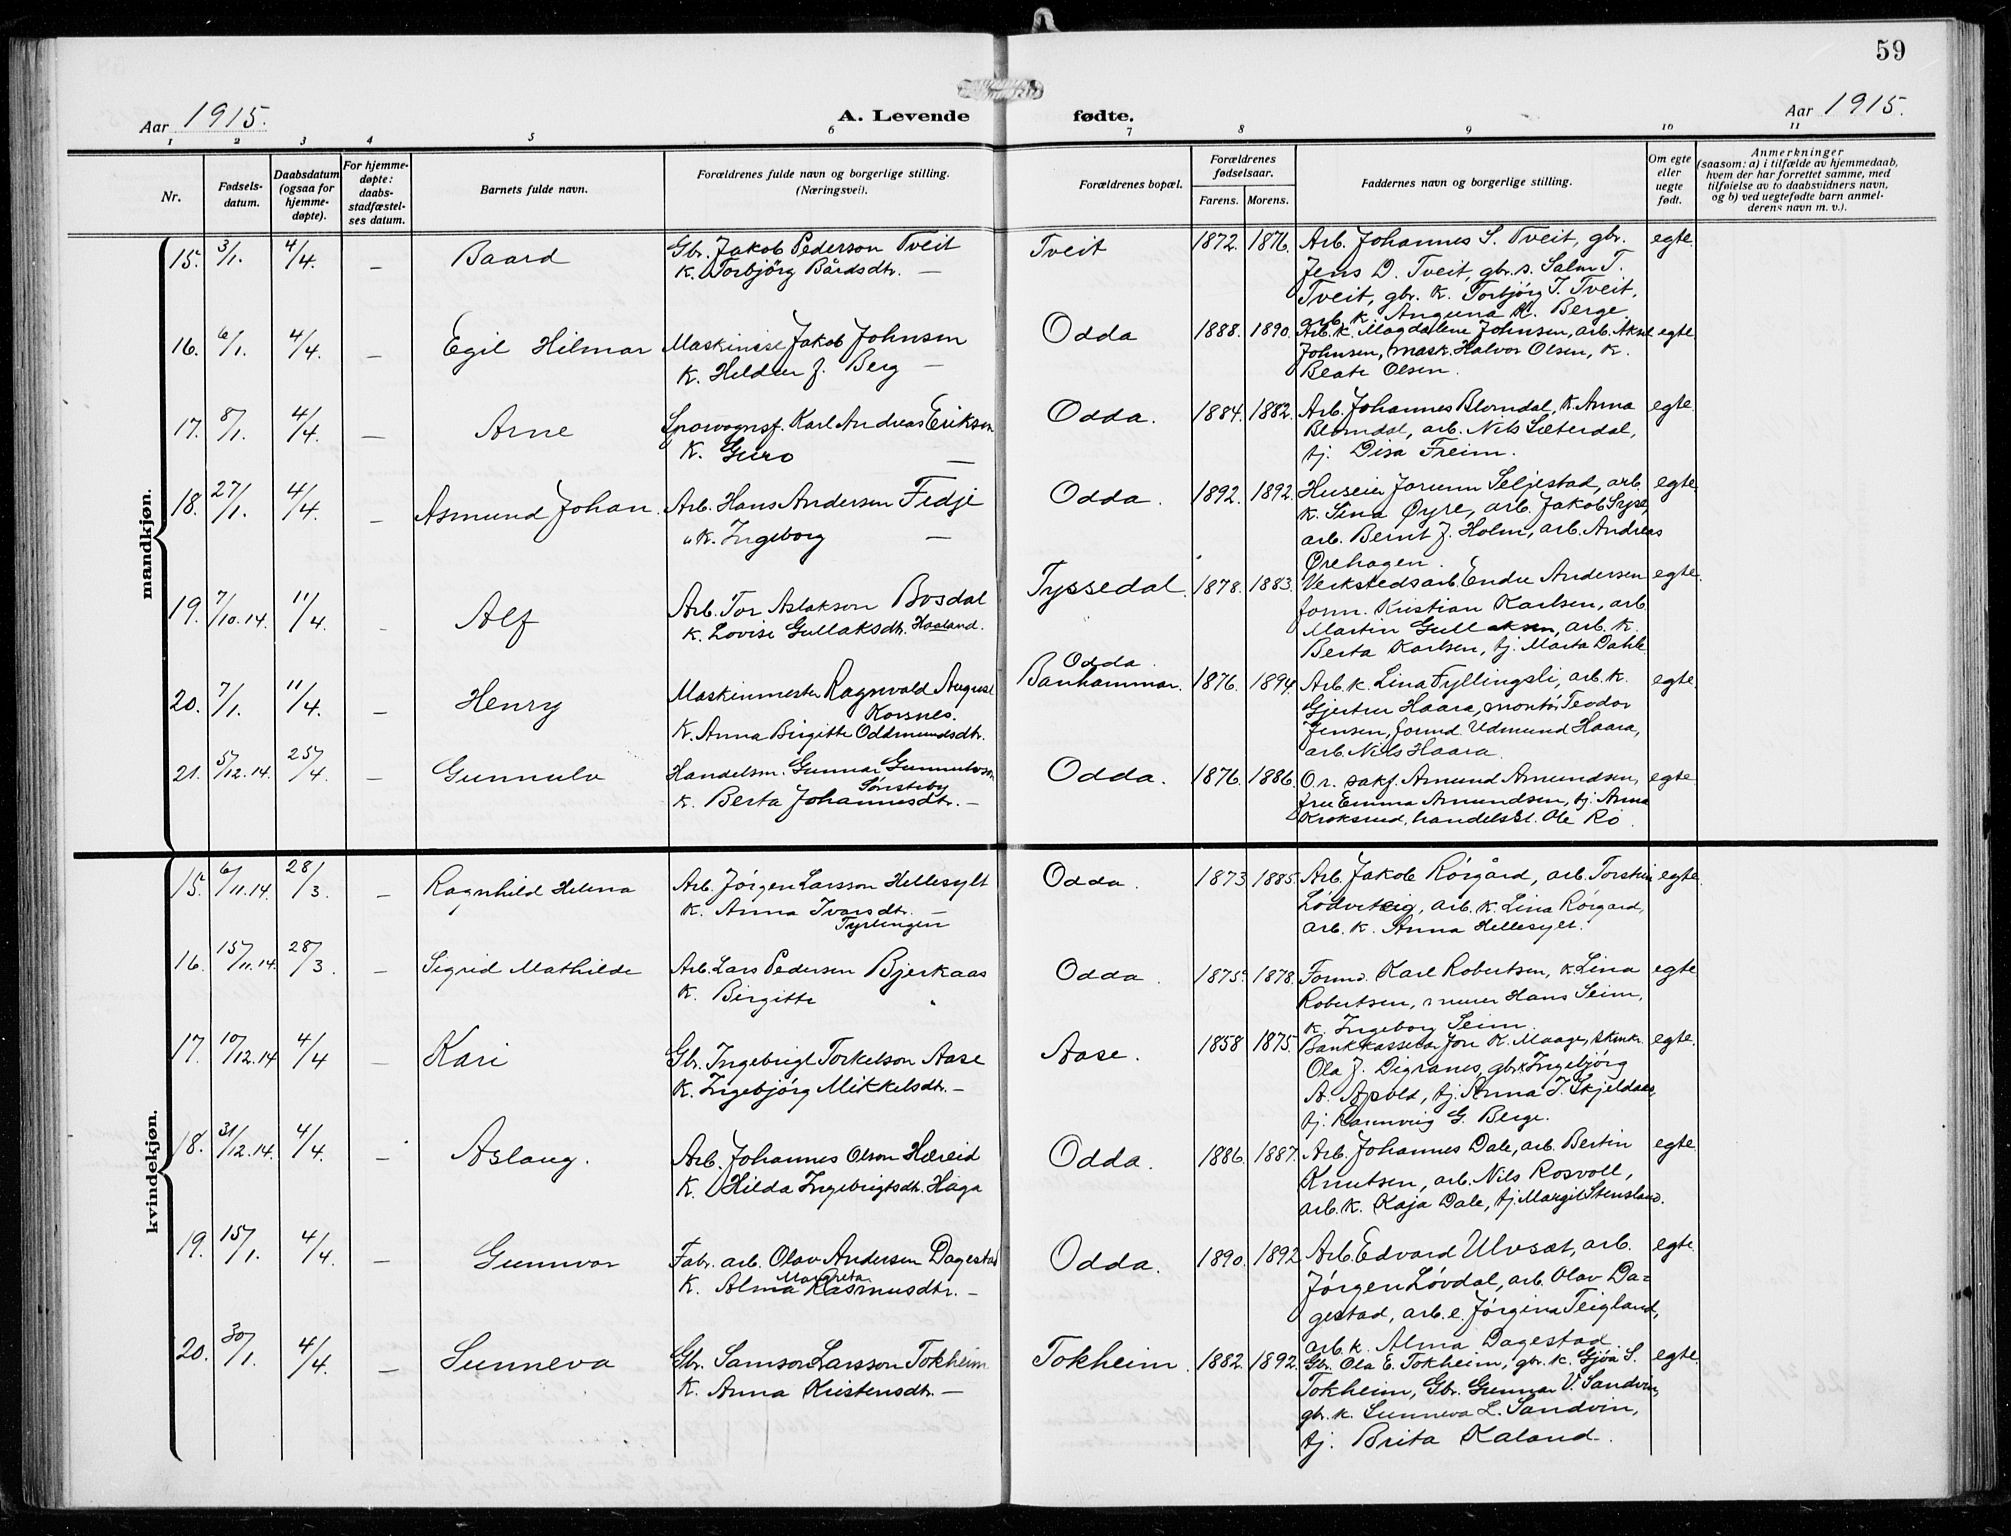 59
Aar 1915. A. Levende fødte. Aar 1915.
1 2 3 4 5 6 7 8 9 10 11
Nr. Fødsels-datum. Daabsdatum (ogsaa for hjemme-døpte). For hjemme-døpte: daabs-stadfæstel-ses datum. Barnets fulde navn. Forældrenes fulde navn og borgerlige stilling. (Næringsvei). Forældrenes bopæl. Forældrenes fødselsaar. Farens. Morens. Faddernes navn og borgerlige stilling. Om egte eller uegte født. Anmerkninger (saasom: a) i tilfælde av hjemmedaab, hvem der har forrettet samme, med tilføielse av to daabsvidners navn, og b) ved uegtefødte barn anmel-derens navn m. v.).
mandkjøn.
15. 3/1. 4/4. – Baard Gbr. Jakob Pederson Tveit Tveit 1872. 1876. Arb. Johannes S. Tveit, gbr. egte.
K. Torbjörg Bårdsdtr. — Jens D. Tveit, gbr. s. Salm T.
Tveit, gbr. K. Torbjörg J. Tveit,
arb. k. Anguna K. Berge.
16. 6/1. 4/4. – Egil Hilmar Maskinist Jakob Johnsen Odda 1888. 1890. Arb. k. Magdalene Johnsen, arb. Aksel egte.
K. Hildur J. Berg — Johnsen, mask. Halvor Olsen, K.
Beate Olsen.
17. 8/1. 4/4. – Arne Sporvognsf. Karl Andreas Erikson Odda. 1884. 1882. Arb. Johannes Blomdal, K. Anna egte.
K. Guro — Blomdal, arb. Nils Sæterdal,
tj. Disa Freim.
18. 27/1. 4/4. – Asmund Johan. Arb. Hans Andersen Fedje Odda. 1892. 1892. Huseier Jorunn Seljestad, arb. egte.
" K. Ingeborg — K. Sina Øyre, arb. Jakob
arb. Bernt J. Holm, arb. Andreas
Ørehagen.
19. 7/10.14. 11/4. – Alf Arb. Tor Aslakson Bosdal Tyssedal. 1878. 1883. Verkstedsarb. Endre Andersen egte.
K. Lovise Gullaksdtr. Haaland. form. Kristian Karlsen, arb.
Martin Gullaksen, arb. K.
Berta Karlsen, tj. Marta Dahle
20. 7/1. 11/4. – Henry Maskinmester Ragnvald August Odda. Banhammar. 1876. 1894. Arb. k. Lina Fyllingsli, arb. k. egte.
Korsnes. Gjertru Haara, montör Teodor
K. Anna Birgitte Oddmundsdtr. Jensen, formd. Udmund Haara,
arb. Nils Haara.
21. 5/12.14. 25/4. – Gunnulv Handelsm. Gunnar Gunnulvson Odda. 1876. 1886. O.r. sakf. Amund Amundsen, egte
Sönsteby
K. Berta Johannesdtr. – fru Emma Amundsen, tj. Anna
Kroksrud, handelsst. Ole Ro.
kvindekjøn.
15. 6/11.14. 28/3. – Ragnhild Helena Arb. Jörgen Larsson Hellesylt Odda. 1873 1885. Arb. Jakob Rörgård, arb. Torstein egte.
K. Anna Ivarsdtr. — Lödverg, arb. K. Lina Rörgard,
Tyrlingen arb. K. Anna Hellesylt.
16. 15/11.14. 28/3. – Sigrid Mathilde Arb. Lars Pedersen Bjerkaas Odda. 1875. 1878. Formd. Karl Robertsen, K. Lina egte
K. Birgitte " Robertsen, murer Hans Seim,
K. Ingeborg Seim.
17. 10/12.14 4/4 – Kari Gb. Ingebrigt Torkelson Aase Aase. 1858 1875. Bankkasserer Jon K. Maage, skinkr. egte.
K. Ingebjörg Mikkelsdtr. – Ola J. Digranes, gbr. k. Ingebjörg
A. Apold, tj. Anna J. Skjeldaas,
tj. Rannveig G. Berge.
18. 31/12.14. 4/4. – Aslaug. Arb. Johannes Olson Hæreid Odda. 1886. 1887. Arb. Johannes Dale, arb. Bertin egte.
K. Hilda Ingebrigtsdtr. Haga Knutsen, arb. Nils Rosvoll,
arb. K. Kaja Dale, tj. Margit Stensland.
19. 15/1. 4/4. – Gunnvor Fabr. arb. Olav Andersen Dagestad Odda. 1890. 1892 Arb. Edvard Ulvsæt, arb. egte.
Margreta
K. Alma Rasmusdtr. – Jörgen Lövdal, arb. Olav Da=
gestad, arb. e. Jörgina Teigland,
arb. k. Alma Dagestad.
20. 30/1. 4/4. – Sunneva Gbr. Samson Larsson Tokheim Tokheim. 1882. 1892. Gbr. Ola E. Tokheim, gbr. K. Gjöa S. egte.
K. Anna Kristensdtr. – Tokheim, Gbr. Gunnar V. Sandvin,
gbr. K. Sunneva L. Sandvin,
tj. Brita Kaland.